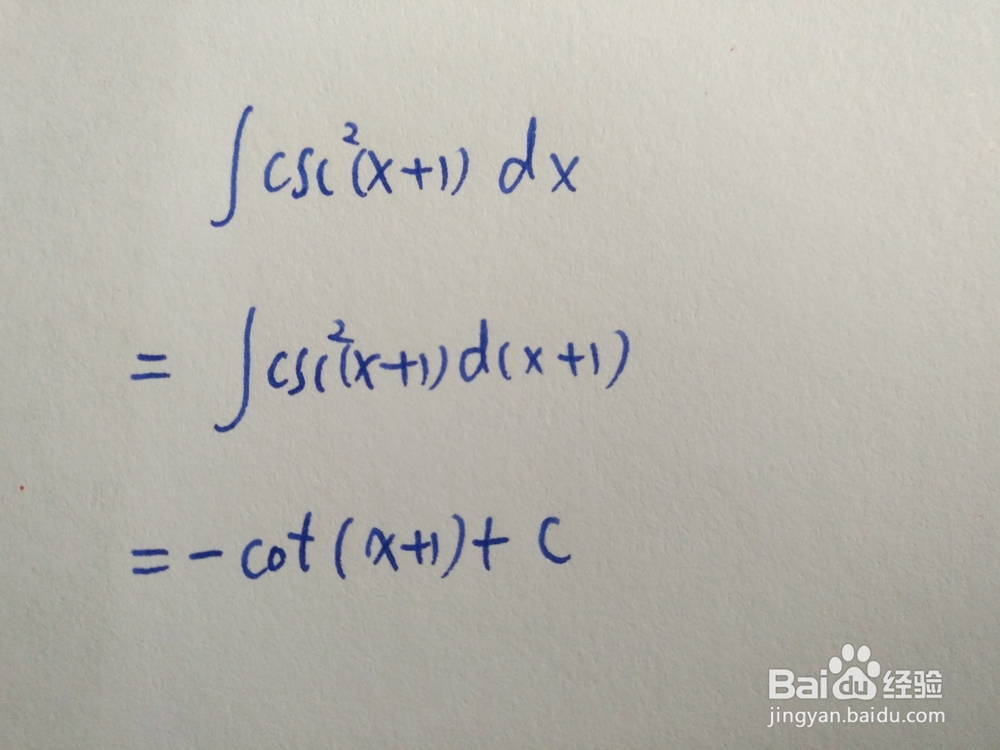 ∫csc²(x+1) dx
= ∫csc²(x+1)d(x+1)
= -cot(x+1)+C
Baidu经验
jingyan.baidu.com